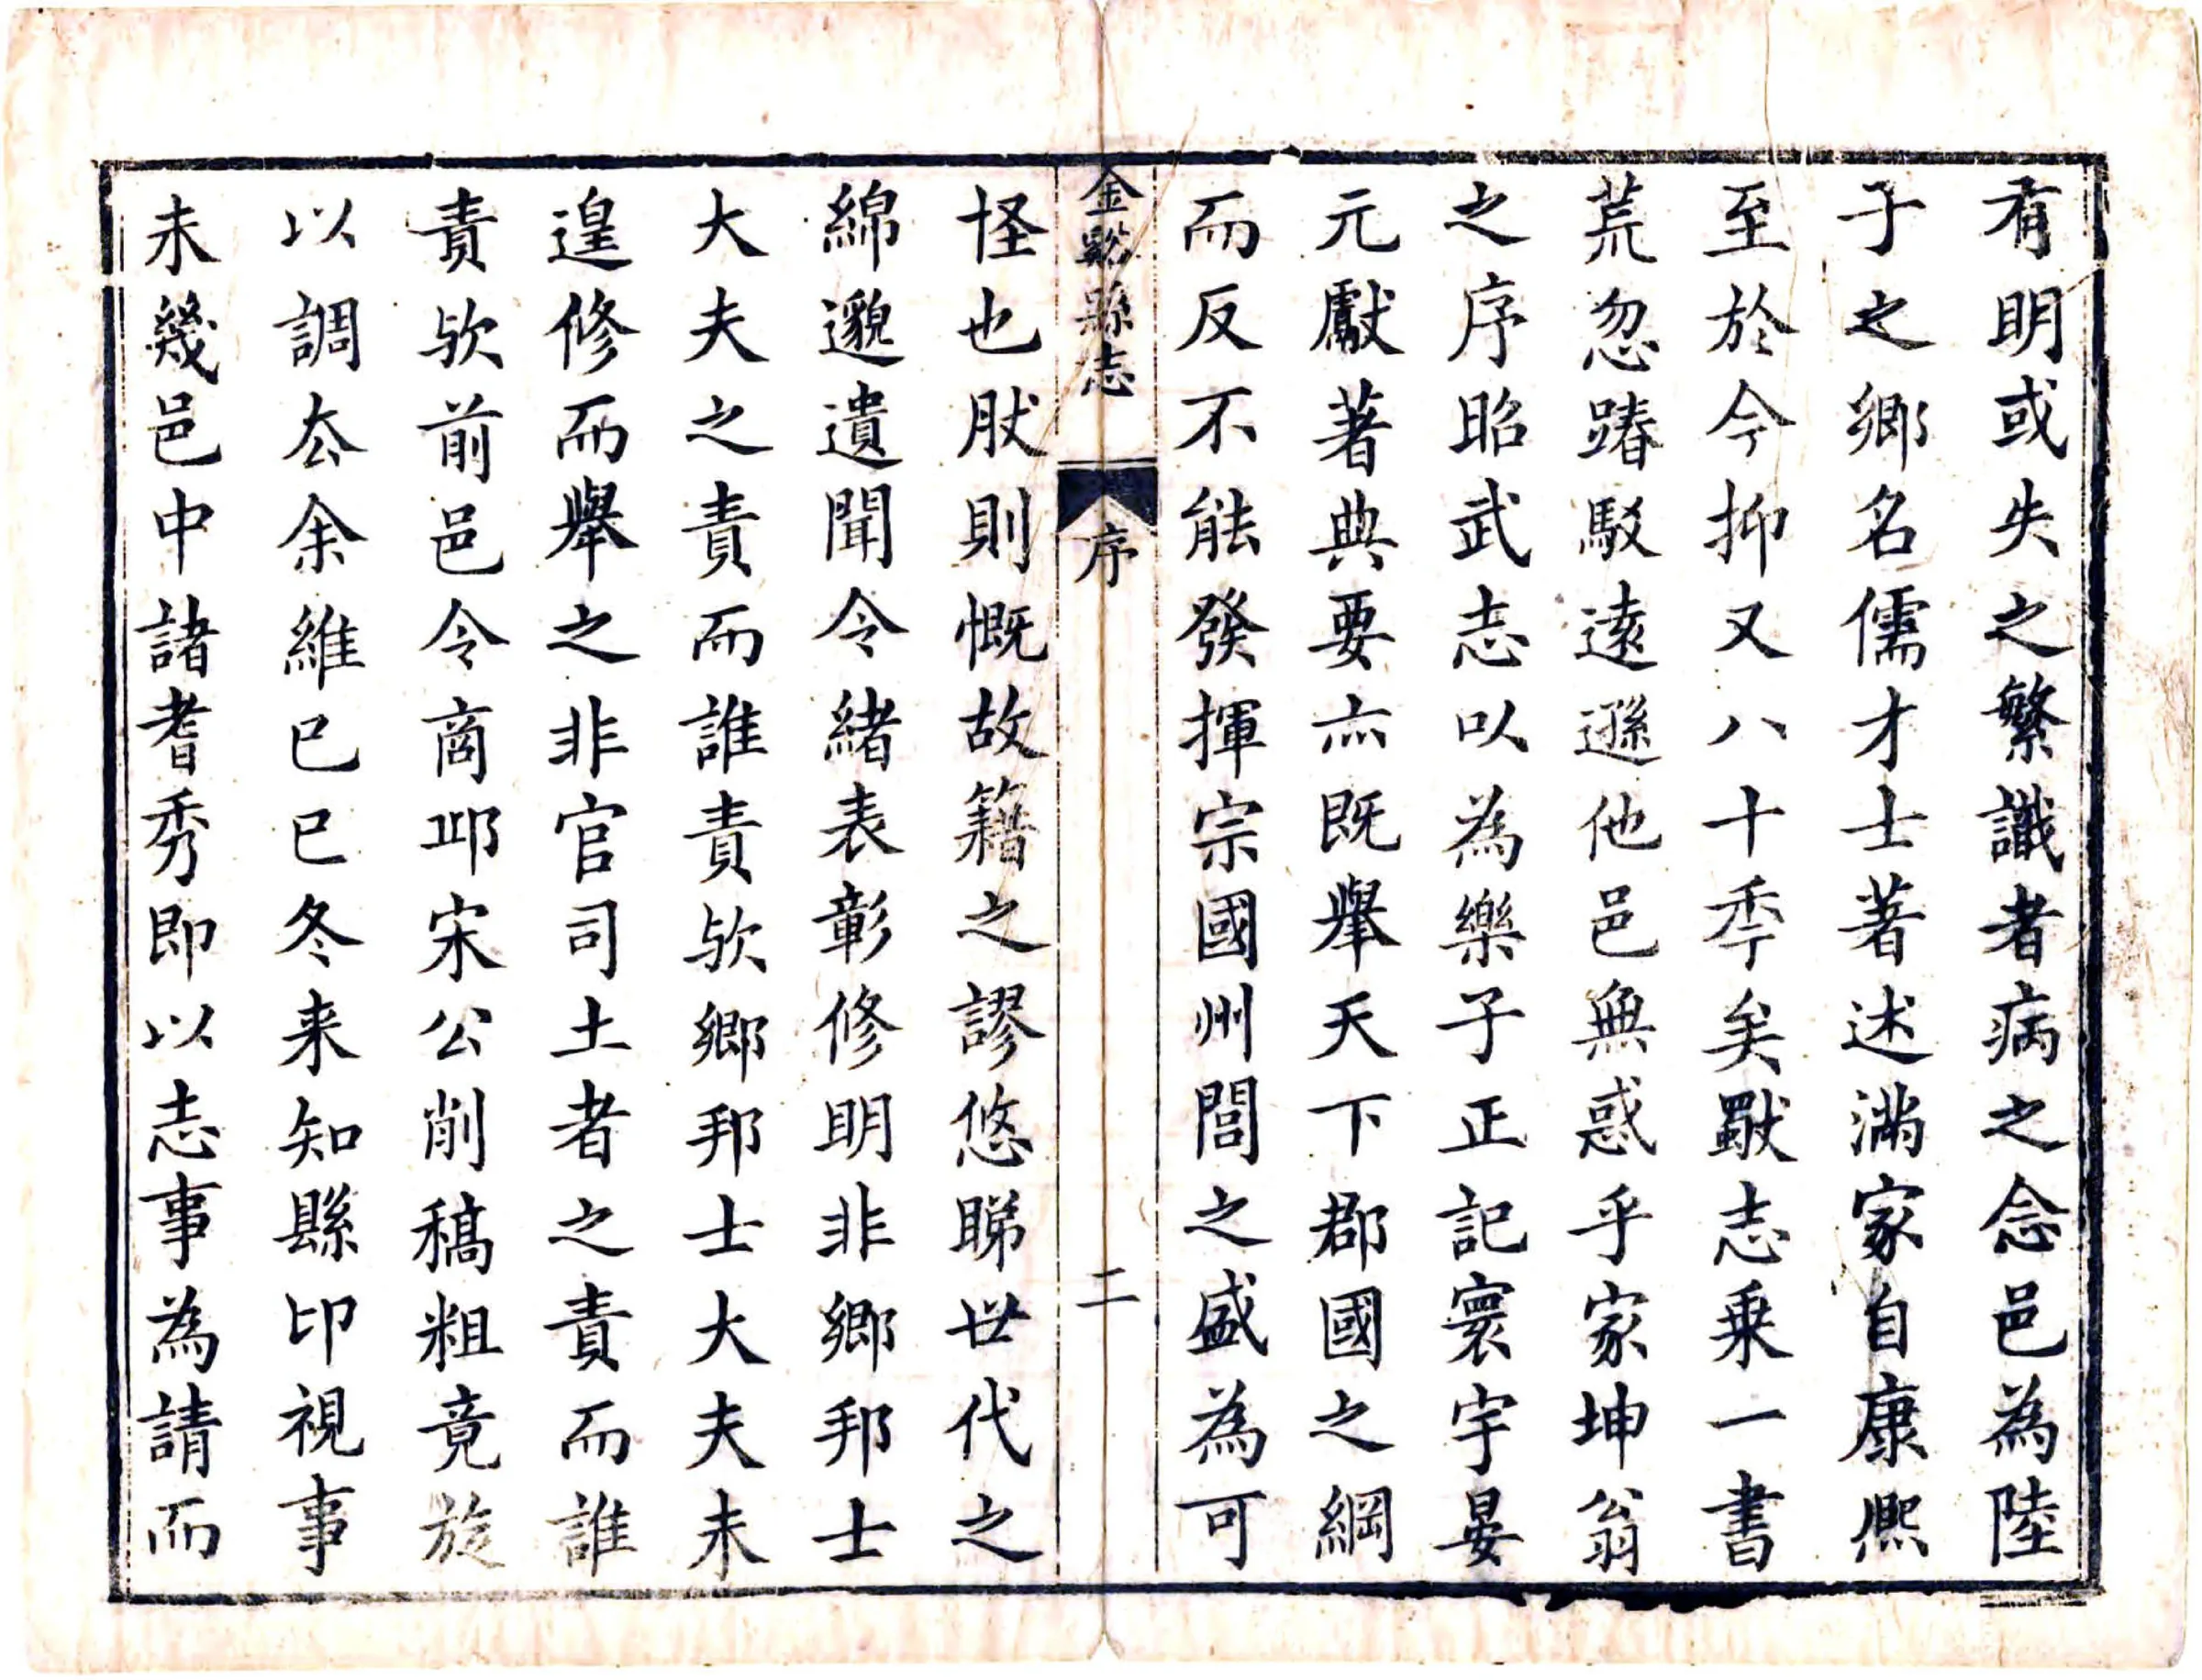 有明或失之繁識者病之念邑為陸
子之鄉名儒才士著述滿家自康熙
至於今抑又八十秊矣獸志乗一書
荒忽踳駁遠遜他邑無惑乎家坤翁
之序昭武志以為樂子正記寰宇晏
元獻著典要亦既舉天下郡國之綱
而反不能發揮宗國州閭之盛為可
金谿縣志
序
二
怪也肰則慨故籍之謬悠睇世代之
綿邈遺聞令緒表彰修明非鄉邦士
大夫之責而誰責欤鄉邦士大夫未
遑修而舉之非官司土者之責而誰
責欤前邑令商邱宋公削稿粗竟旋
以調去余維己巳冬来知縣印視事
未幾邑中諸耆秀即以志事為請而